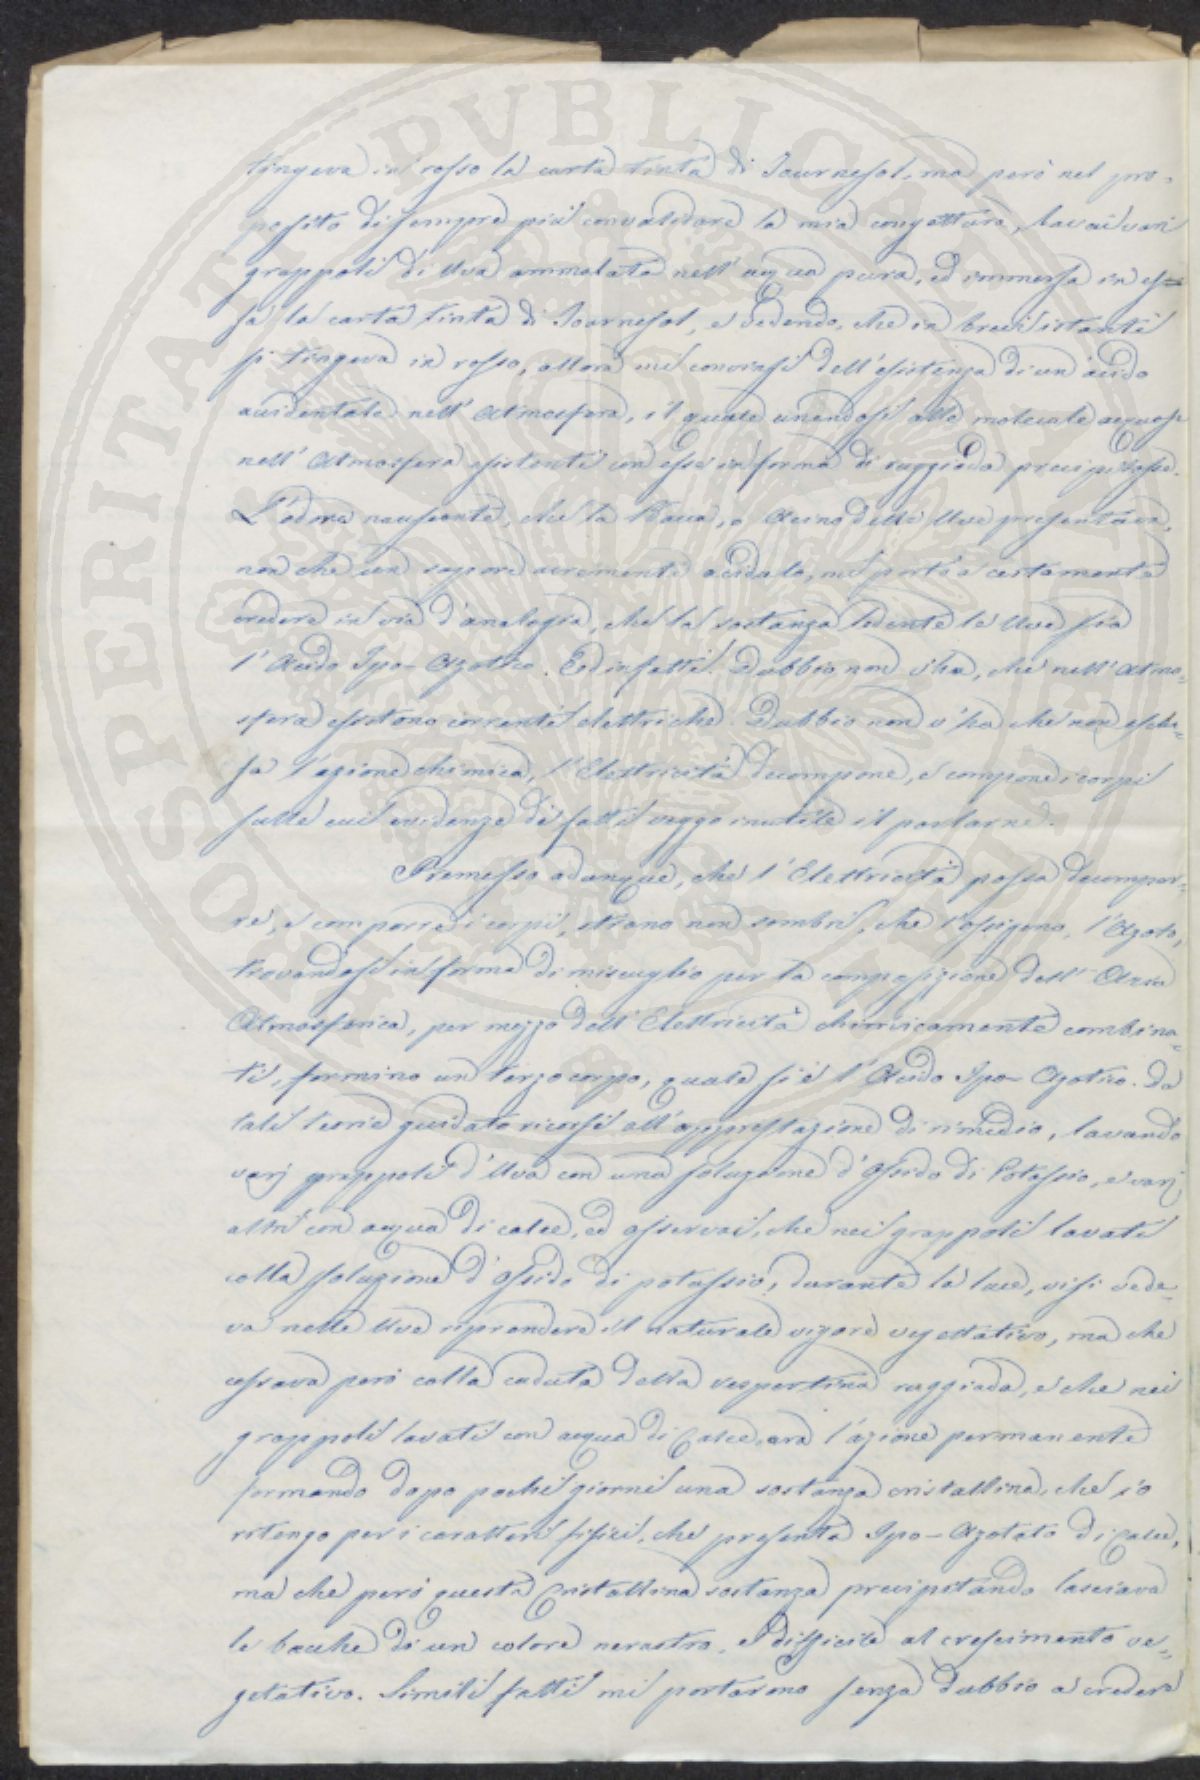 PROSPERITATI PUBLICAE
tingeva in rosso la carta tinta di Tournesol, ma però nel pro-
posito di sempre più convalidare la mia congettura, lavai vari
grappoli di Uva ammalata nell' acqua pura, ed immersa in es-
sa la carta tinta di Tournesol, e vedendo, che in brevi istanti
si tingeva in rosso, allora mi convinsi dell' esistenza di un acido
accidentale nell' Atmosfera, il quale unendosi alle molecule acquose
nell' Atmosfera esistenti con esse in forma di ruggiada precipitasse.
L'odore nauseante, che la Bacca, o Acino delle Uve presentava,
non che un sapore acremente acidulo, mi portò a certamente
credere in via d'analogia, che la sostanza ledente le Uve sia
l' Acido Ipo-Azotico. Ed infatti: Dubbio non v'ha, che nell' Atmo-
sfera esistono correnti elettriche. Dubbio non v'ha che non esclu-
sa l'azione chimica, l'Elettricità decompone, e compone i corpi
sulle cui evidenze di fatti veggo inutile il parlarne.
Premesso adunque, che l' Elettricità possa decompor-
re, e comporre i corpi, strano non sembri, che l'ossigeno, l'Azoto,
trovandosi in forma di miscuglio per la composizione dell' Aria
Atmosferica, per mezzo dell' Elettricità chimicamente combina-
ti, formino un terzo corpo, quale si è l' Acido Ipo-Azotico. Da
tali teorie guidato ricorsi all' apprestazione di rimedio, lavando
varj grappoli d'Uva con una soluzione d'Ossido di Potassio, e varj
altri con acqua di calce, ed osservai, che nei grappoli lavati
colla soluzione d'Ossido di potassio, durante la luce, vi si vede-
va nelle Uve riprendere il naturale vigore vegetativo, ma che
cessava però colla caduta della vespertina ruggiada, e che nei
grappoli lavati con acqua di Calce, era l'azione permanente
formando dopo pochi giorni una sostanza cristallina, che io
ritengo per i caratteri fisici, che presenta Ipo-Azotato di Calce,
ma che però questa Cristallina sostanza precipitando lasciava
le bacche di un colore nerastro, e difficile al crescimento ve-
getativo. Simili fatti mi portarono senza dubbio a credere